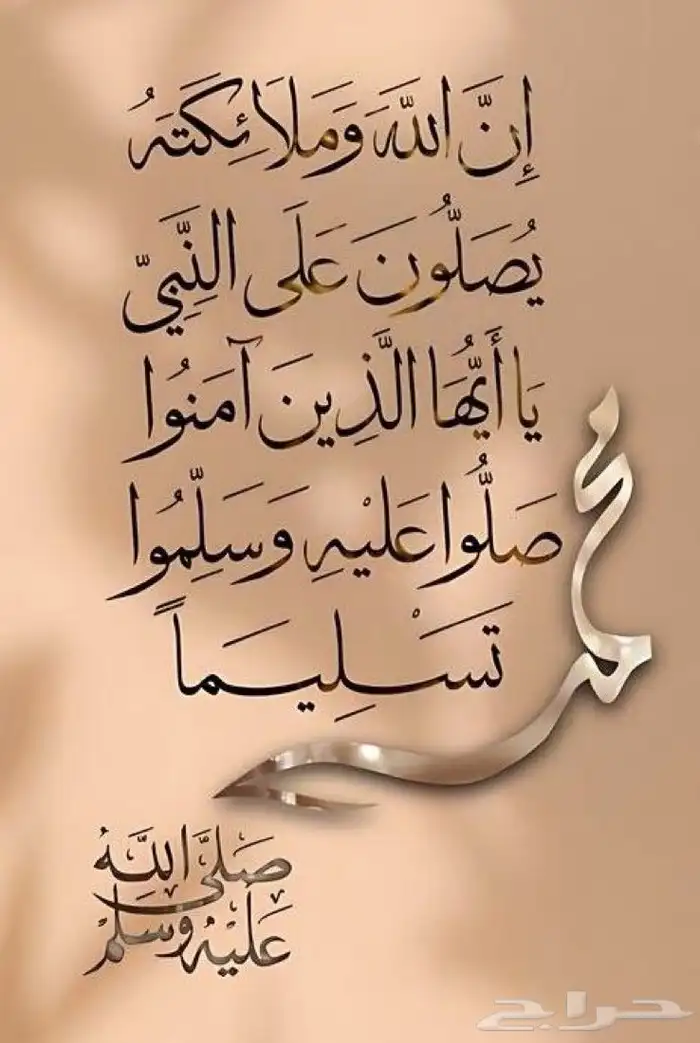 إِنَّ اللَّهَ وَمَلَائِكَتَهُ
يُصَلُّونَ عَلَى النَّبِيِّ
يَا أَيُّهَا الَّذِينَ آمَنُوا
صَلُّوا عَلَيْهِ وَسَلِّمُوا
تَسْلِيمَاً
محمد
صَلَّى اللَّهُ
عَلَيْهِ وَسَلَّمَ
حراج